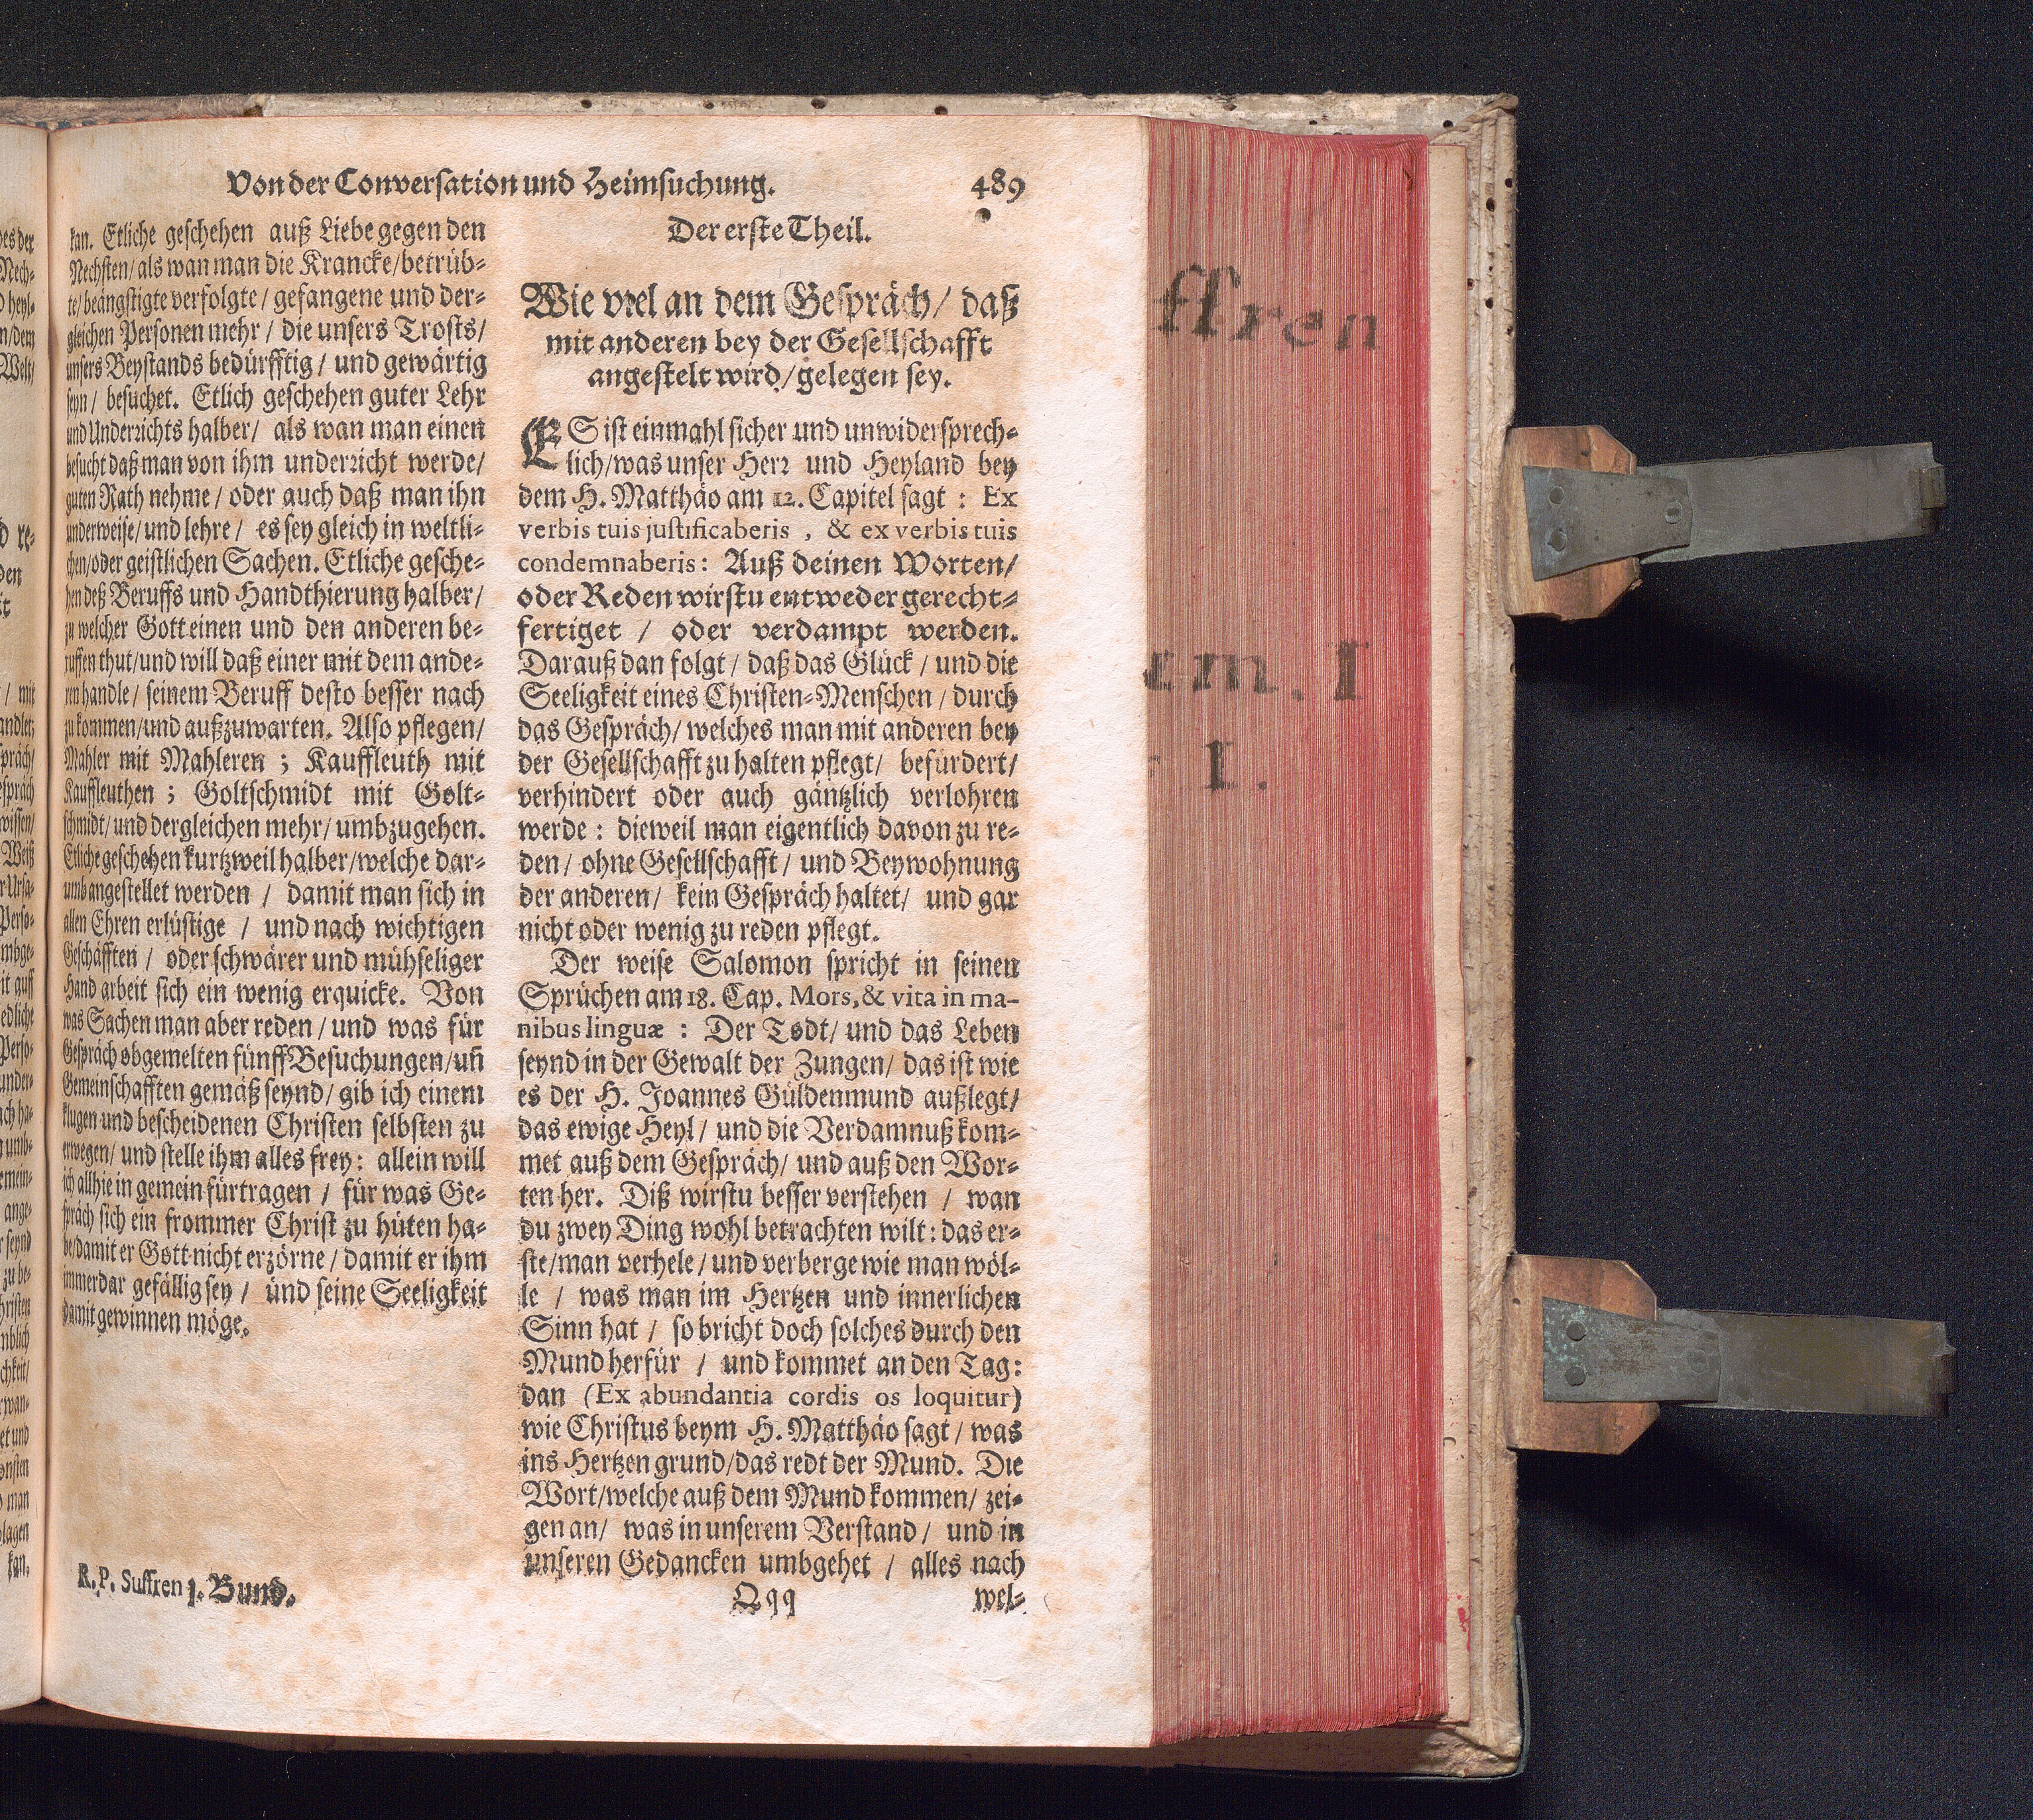 Von der Conversation und Heimsuchung.
489
kan. Etliche geschehen auß Liebe gegen den
Nechsten/ als wan man die Krancke/ betrüb-
te/ beängstigte verfolgte/ gefangene und der-
gleichen Personen mehr/ die unsers Trosts/
unsers Beystands bedürfftig/ und gewärtig
seyn/ besuchet. Etlich geschehen guter Lehr
und Underrichts halber/ als wan man einen
besucht daß man von ihm underricht werde/
guten Rath nehme/ oder auch daß man ihn
underweise/ und lehre/ es sey gleich in weltli-
chen/ oder geistlichen Sachen. Etliche gesche-
hen deß Beruffs und Handthierung halber/
zu welcher Gott einen und den anderen be-
ruffen thut/ und will daß einer mit dem ande-
ren handle/ seinem Beruff desto besser nach
zu kommen/ und außzuwarten. Also pflegen/
Mahler mit Mahleren; Kauffleuth mit
Kauffleuthen; Goltschmidt mit Golt-
schmidt/ und dergleichen mehr/ umbzugehen.
Etliche geschehen kurtzweil halber/ welche dar-
umb angestellet werden/ damit man sich in
allen Ehren erlüstige/ und nach wichtigen
Geschäfften/ oder schwärer und mühseliger
Hand arbeit sich ein wenig erquicke. Von
was Sachen man aber reden/ und was für
Gespräch obgemelten fünff Besuchungen/ uñ
Gemeinschafften gemäß seynd/ gib ich einem
klugen und bescheidenen Christen selbsten zu
erwegen/ und stelle ihm alles frey: allein will
ich allhie in gemein fürtragen/ für was Ge-
spräch sich ein frommer Christ zu hüten ha-
be/ damit er Gott nicht erzörne/ damit er ihm
immerdar gefällig sey/ und seine Seeligkeit
damit gewinnen möge.
R. P. Suffren 1. Bund.
Der erste Theil.
Wie viel an dem Gespräch/ daß
mit anderen bey der Gesellschafft
angestelt wird/ gelegen sey.
ES ist einmahl sicher und unwidersprech-
lich/ was unser Herr und Heyland bey
dem H. Matthäo am 12. Capitel sagt: Ex
verbis tuis justificaberis, & ex verbis tuis
condemnaberis: Auß deinen Worten/
oder Reden wirstu entweder gerecht-
fertiget/ oder verdampt werden.
Darauß dan folgt/ daß das Glück/ und die
Seeligkeit eines Christen-Menschen/ durch
das Gespräch/ welches man mit anderen bey
der Gesellschafft zu halten pflegt/ befürdert/
verhindert oder auch gäntzlich verlohren
werde: dieweil man eigentlich davon zu re-
den/ ohne Gesellschafft/ und Beywohnung
der anderen/ kein Gespräch haltet/ und gar
nicht oder wenig zu reden pflegt.
Der weise Salomon spricht in seinen
Sprüchen am 18. Cap. Mors, & vita in ma-
nibus linguæ: Der Todt/ und das Leben
seynd in der Gewalt der Zungen/ das ist wie
es der H. Joannes Güldenmund außlegt/
das ewige Heyl/ und die Verdamnuß kom-
met auß dem Gespräch/ und auß den Wor-
ten her. Diß wirstu besser verstehen/ wan
du zwey Ding wohl betrachten wilt: das er-
ste/ man verhele/ und verberge wie man wöl-
le/ was man im Hertzen und innerlichen
Sinn hat/ so bricht doch solches durch den
Mund herfür/ und kommet an den Tag:
dan (Ex abundantia cordis os loquitur)
wie Christus beym H. Matthäo sagt/ was
ins Hertzen grund/ das redt der Mund. Die
Wort/ welche auß dem Mund kommen/ zei-
gen an/ was in unserem Verstand/ und in
unseren Gedancken umbgehet/ alles nach
Qqq
wel-
ffren
m. I
I.